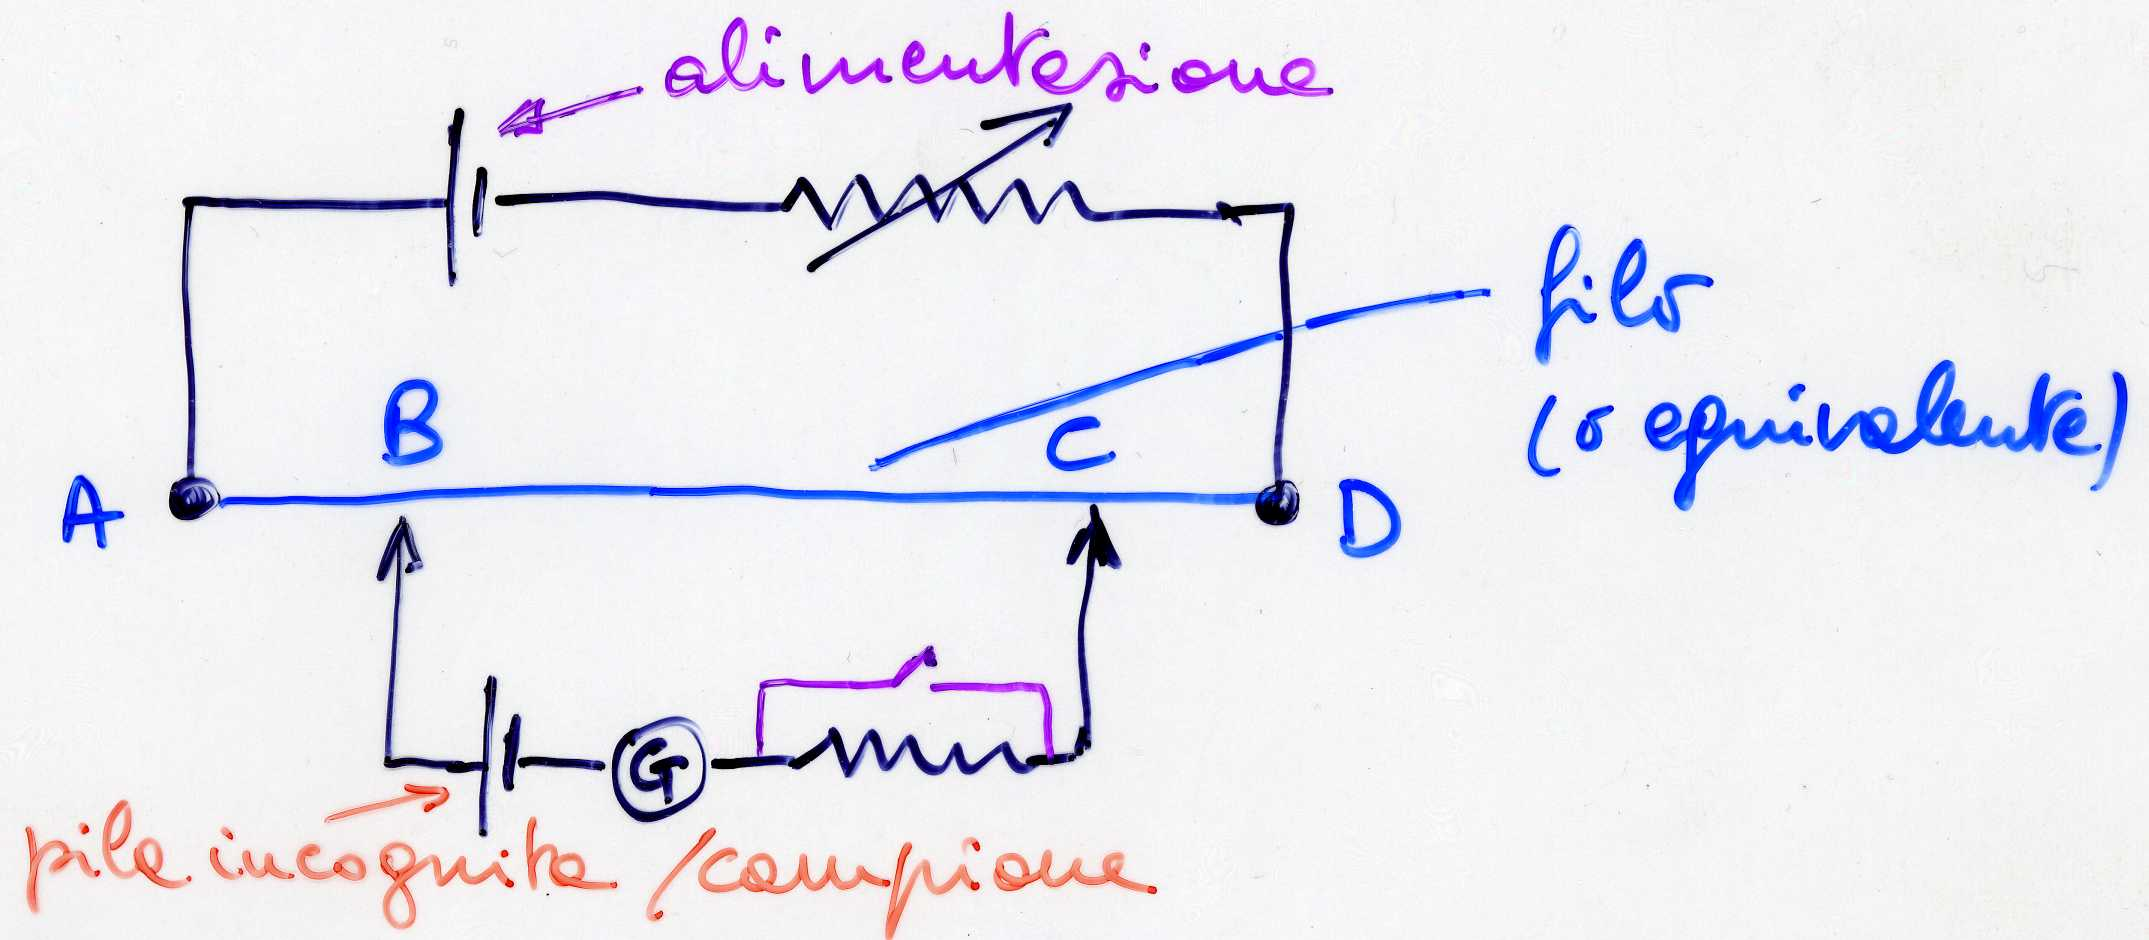 alimentazione
filo
(o equivalente)
B
C
A
D
G
pila incognita /campione